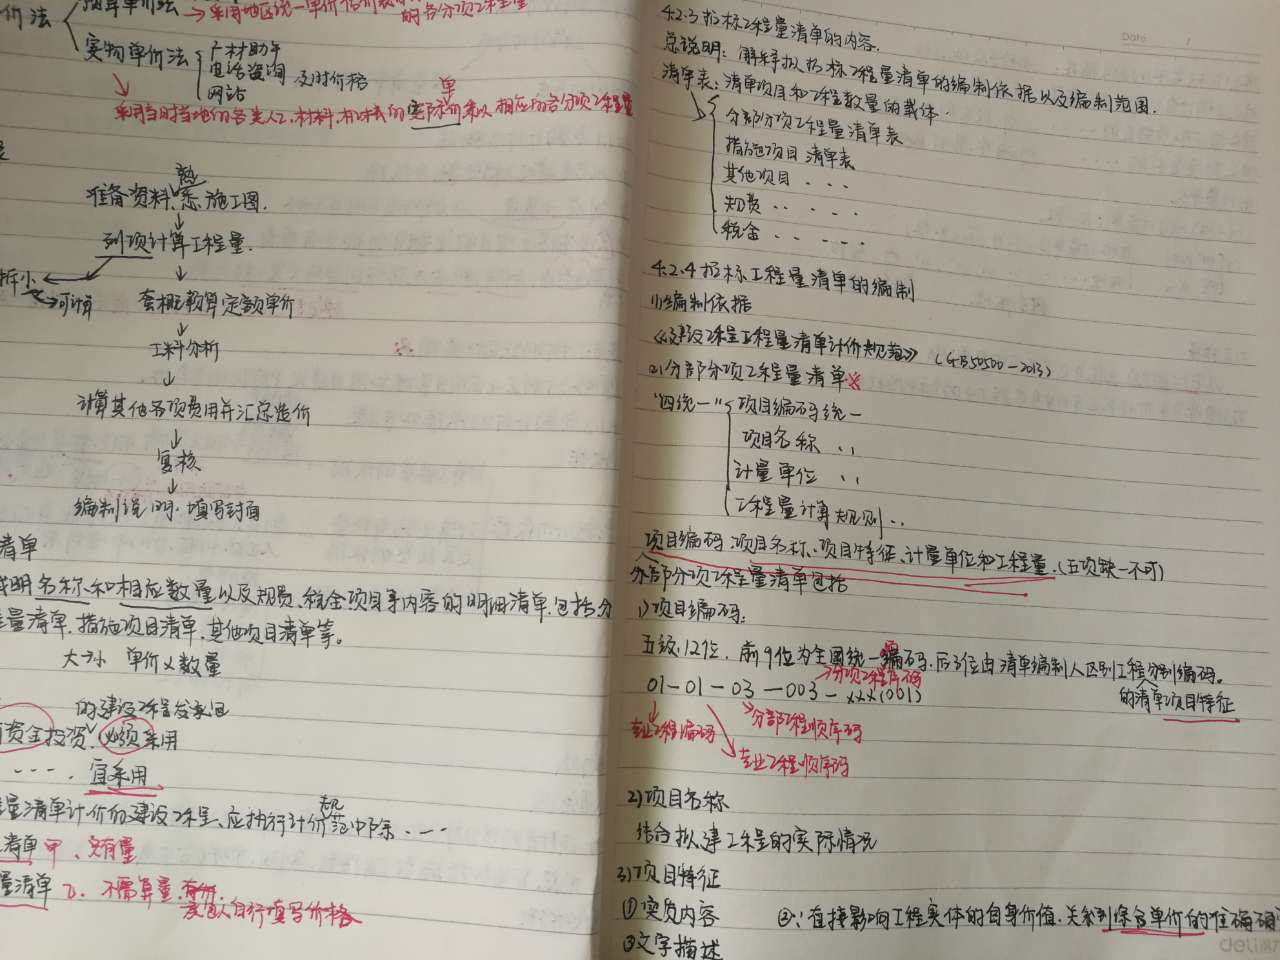 价法
预算单价法
实物单价法
广材助手
电话咨询 及时价格
网站
单
采用当时当地的各类人工、材料、机械的实际价乘以相应的各分项工程量
熟
准备资料、悉施工图.
列项计算工程量.
拆小
可计算
套概预算定额单价
工料分析
计算其他各项费用并汇总造价
复核
编制说明·填写封面
清单
明名称和相应数量以及规费、税金项目等内容的明细清单.包括分
量清单.措施项目清单.其他项目清单等。
大小 单价×数量
的建设工程发承包
资金投资、必须采用
····. 宜采用
量清单计价的建设工程、应执行计价规范中除·--
清单 甲、只有量
量清单 乙. 不需算量.有价.
承包人自行填写价格
4.2.3招标工程量清单的内容.
总说明：解释拟招标工程量清单的编制依据以及编制范围.
清单表：清单项目和工程数量的载体.
分部分项工程量清单表
措施项目清单表
其他项目 . . .
规费 . . . . .
税金 . . . . .
4.2.4招标工程量清单的编制
(1)编制依据
《建设工程工程量清单计价规范》(GB50500-2013)
(2)分部分项工程量清单
"四统一" 项目编码统一
项目名称 ..
计量单位 ..
工程量计算规则 ..
项目编码.项目名称、项目特征、计量单位和工程量.(五项缺一不可)
分部分项工程量清单包括
1)项目编码:
五级.12位. 前9位为全国统一编码.后3位由清单编制人区别工程分别编码。
的清单项目特征
分项工程顺序码
01-01-03-003-xxx(001)
专业工程编码
分部工程顺序码
专业工程顺序码
2)项目名称
结合拟建工程的实际情况
3)项目特征
①实质内容 ②∵直接影响工程实体的自身价值.关系到综合单价的准确确
③文字描述
deli